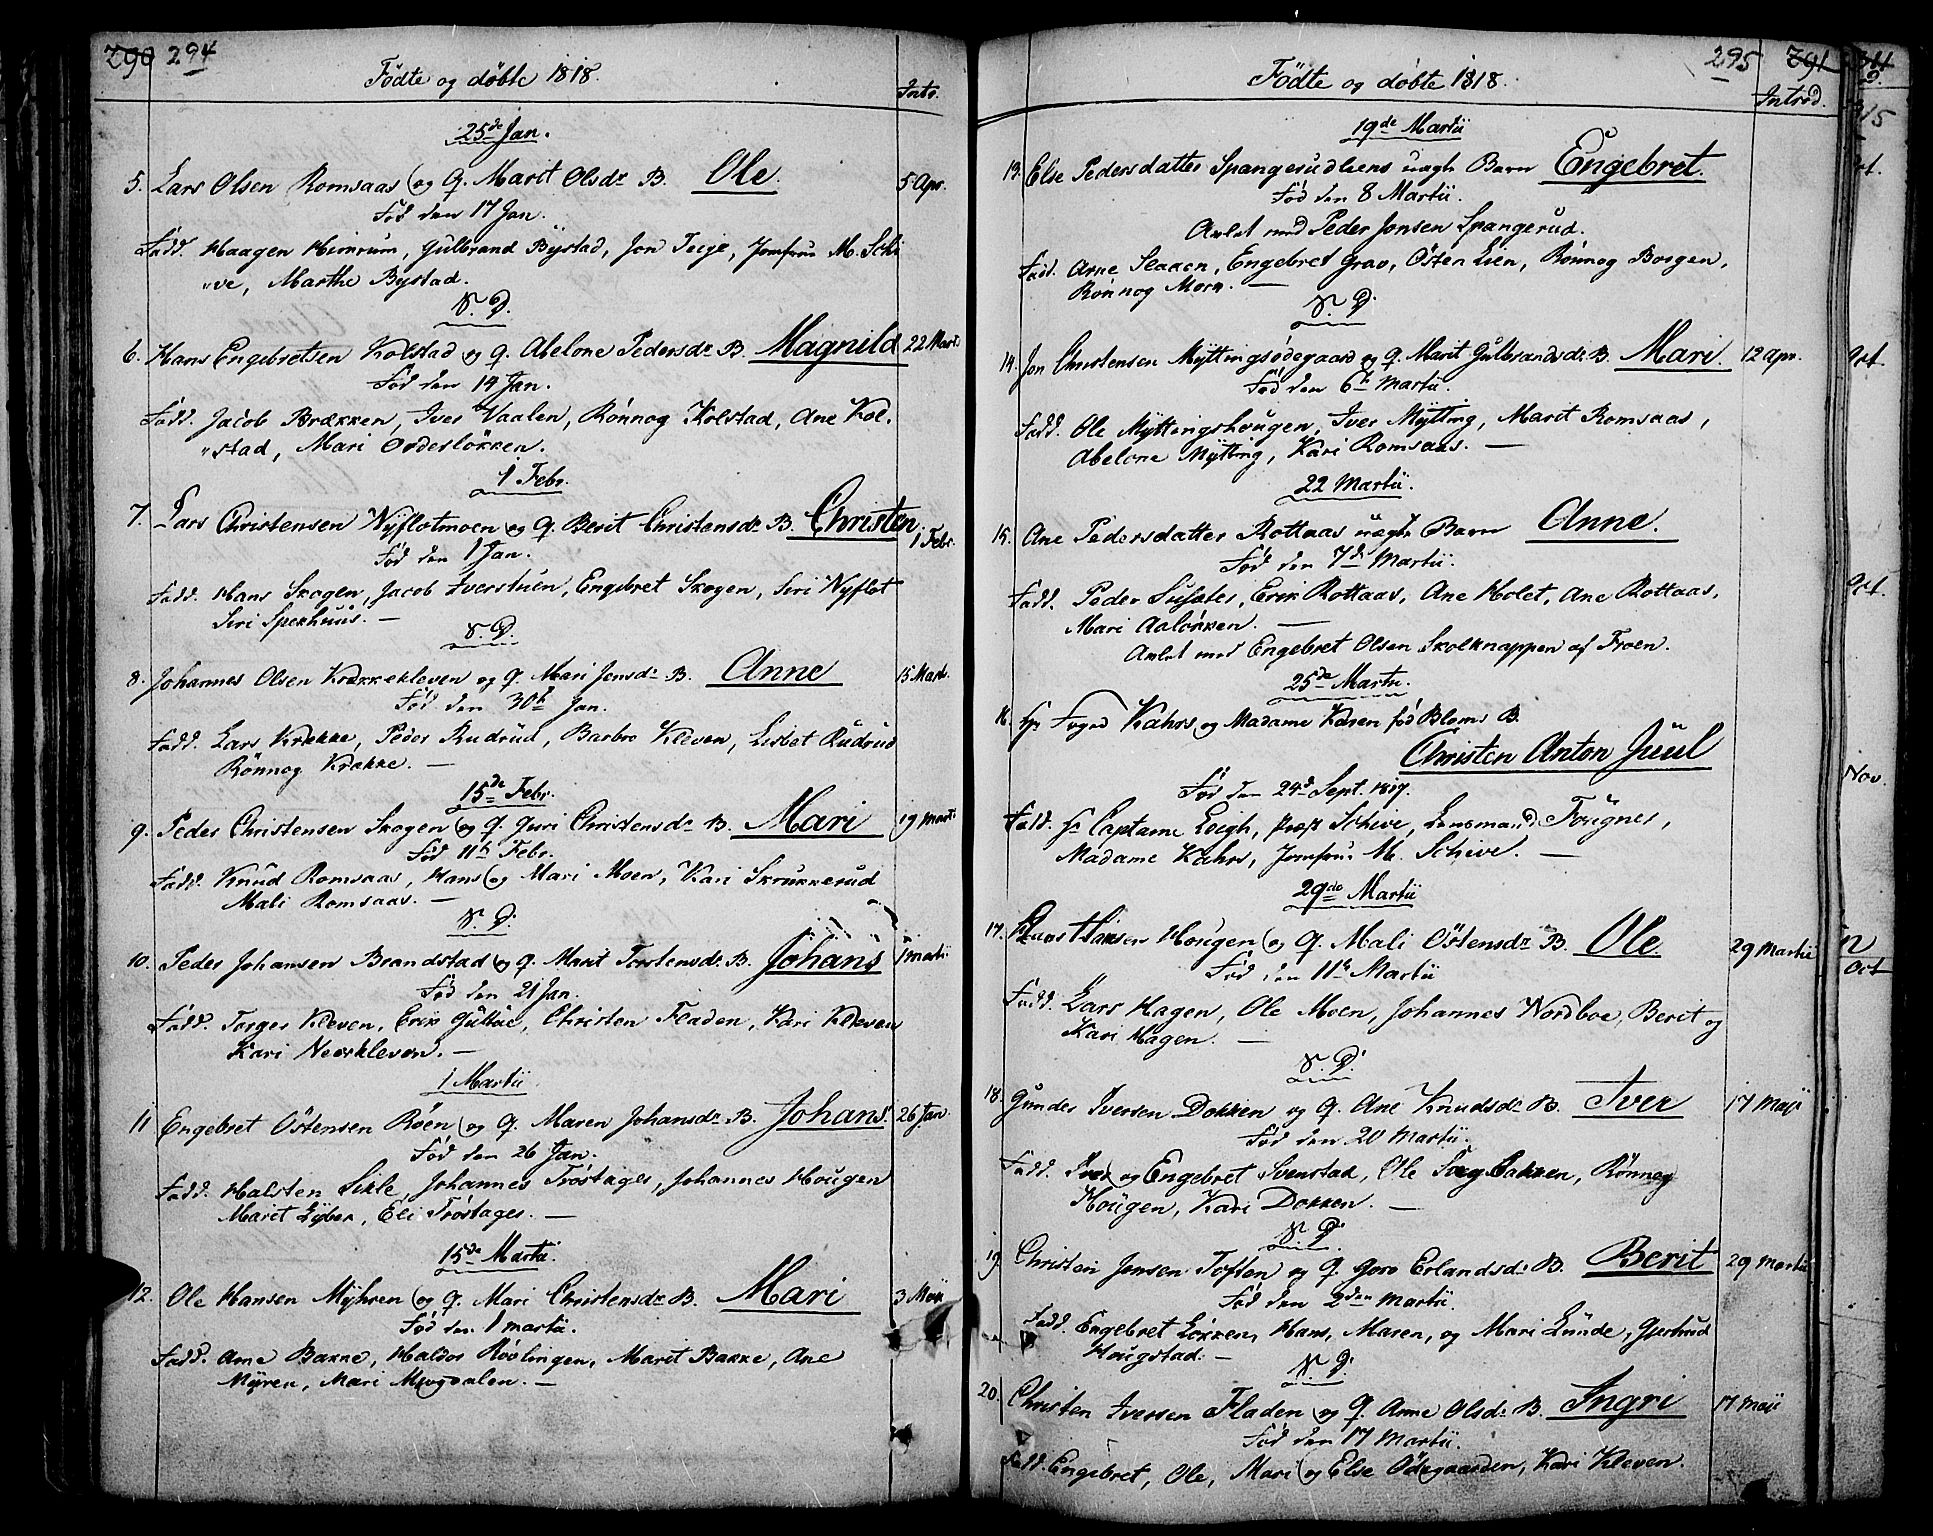 290 294
Fødte og døbte 1818.
Intr.
25de Jan.
5. Lars Olsen Romsaas og q. Marit Olsdr B. Ole 5 Apr.
Fød den 17 Jan.
Fadd. Haagen Himrum, Gulbrand Bÿstad, Jon Teige, Jomfrue M. Schi
"ve, Marthe Bystad.
S. D.
6. Hans Engebretsen Kolstad og q. Abelone Pedersdr B. Magnild 22 Mart.
Fød den 14 Jan.
Fadd. Jacob Brækken, Iver Vaalen, Rønnog Kolstad, Ane Kol-
"stad, Mari Ordesløkken.
1 Febr.
7. Lars Christensen Nyflotmoen og q. Berit Christensdr B. Christen 1 Febr.
Fød den 1 Jan.
Fadd. Hans Skogen, Jacob Iverstuen, Engebret Skogen, Siri Nyflot
Siri Spekhuus. —
S. D.
8. Johannes Olsen Krækkekleven og q. Mari Jensdr B. Anne 15 Mart.
Fød den 30te Jan.
Fadd. Lars Krække, Peder Rudrud, Barbro Kleven, Lisbet Rudrud
Rønnog Krække. —
15de Febr.
9. Peder Christensen Skogen og q. Guri Christensdr B. Mari 19 Mart.
Fød 11te Febr.
Fadd. Knud Romsaas, Hans og Mari Moen, Kari Skrukkerud
Mali Romsaas. —
S. D.
10. Peder Johansen Brandstad og q. Marit Torstensdr B. Johans 1 Martii
Fød den 21 Jan.
Fadd. Torger Kleven, Erik Guttue, Christen Fladen, Kari Kleven
Kari Neerkleven. —
1 Martii
11 Engebret Östensen Röen og q. Maren Johansdr B. Johans 26 Jan.
Fød den 26 Jan.
Fadd. Halsten Sikle, Johannes Trøstages, Johannes Hougen
Marit Lÿber, Eli Trøstages. —
15de Martii
12. Ole Hansen Mÿhren og q. Mari Christensdr B. Mari 3 Maii
Fød den 1 martii.
Fadd. Arne Bakke, Haldor Rölingen, Marit Bakke, Ane
Mÿren, Mari Mugdalen. —
295 291
Fødte og døbte 1818.
Introd.
19de Martii
13. Else Pedersdatter Spangerudliens uægte Barn Engebret.
Fød den 8 Martii.
Avlet med Peder Jonsen Spangerud.
Fadd. Arne Slaaen, Engebret Grav, Östen Lien, Rønnog Borgen,
Rønnog Morn. —
S. D.
14. Jon Christensen Myttingsødegaard og q. Marit Gulbrandsdr B. Mari. 12 Apr.
Fød den 6te Martii.
Fadd. Ole Myttingshougen, Iver Mÿtting, Marit Romsaas,
Abelone Mÿtting, Kari Romsaas. —
22 Martii.
15. Ane Pedersdatter Rottaas uægte Barn Anne.
Fød den 7de Martii.
Fadd. Peder, Erik Rottaas, Ane Holet, Ane Rottaas,
Mari Aaløkken. —
Avlet med Engebret Olsen Skolknappen af Froen.
25de Martii.
16. Hr Foged Kahrs og Madame Karen fød Bloms B.
Christen Anton Juul
Fød den 24de Sept. 1817.
Fadd. Hr Captaine Leigh, Schive, Lensmand Tougnes,
Madame Kahrs, Jomfrue M. Schive. —
29de Martii
17. Hans Hansen Hougen og q. Mali Östensdr B. Ole 29 Martii
Fød den 11te Martii
Fadd. Lars Hagen, Ole Moen, Johannes Nordboe, Berit og
Kari Hagen. —
S. D.
18. Gunder Iversen Dokken og q. Ane Knudsdr B. Iver 17 Maji
Fød den 20 Martii.
Fadd. Iver og Engebret Svenstad, Ole Bakken, Rønnog
Hougen, Kari Dokken. —
S. D.
19. Christen Jensen Toften og q. Goro Erlandsdr B. Berit 29 Martii
Fød den 2den Martii.
Fadd. Engebret Løkken, Hans, Maren, og Mari Lunde, Gjertrud
Hougstad. —
S. D.
20. Christen Iversen Fladen og q. Anne Olsdr B. Ingri 17 Maji
Fød den 17 Martii.
Fadd. Engebret, Ole, Mari og Else Ödegaarden, Kari Kleven.
315
Oct.
Nov.
Oct